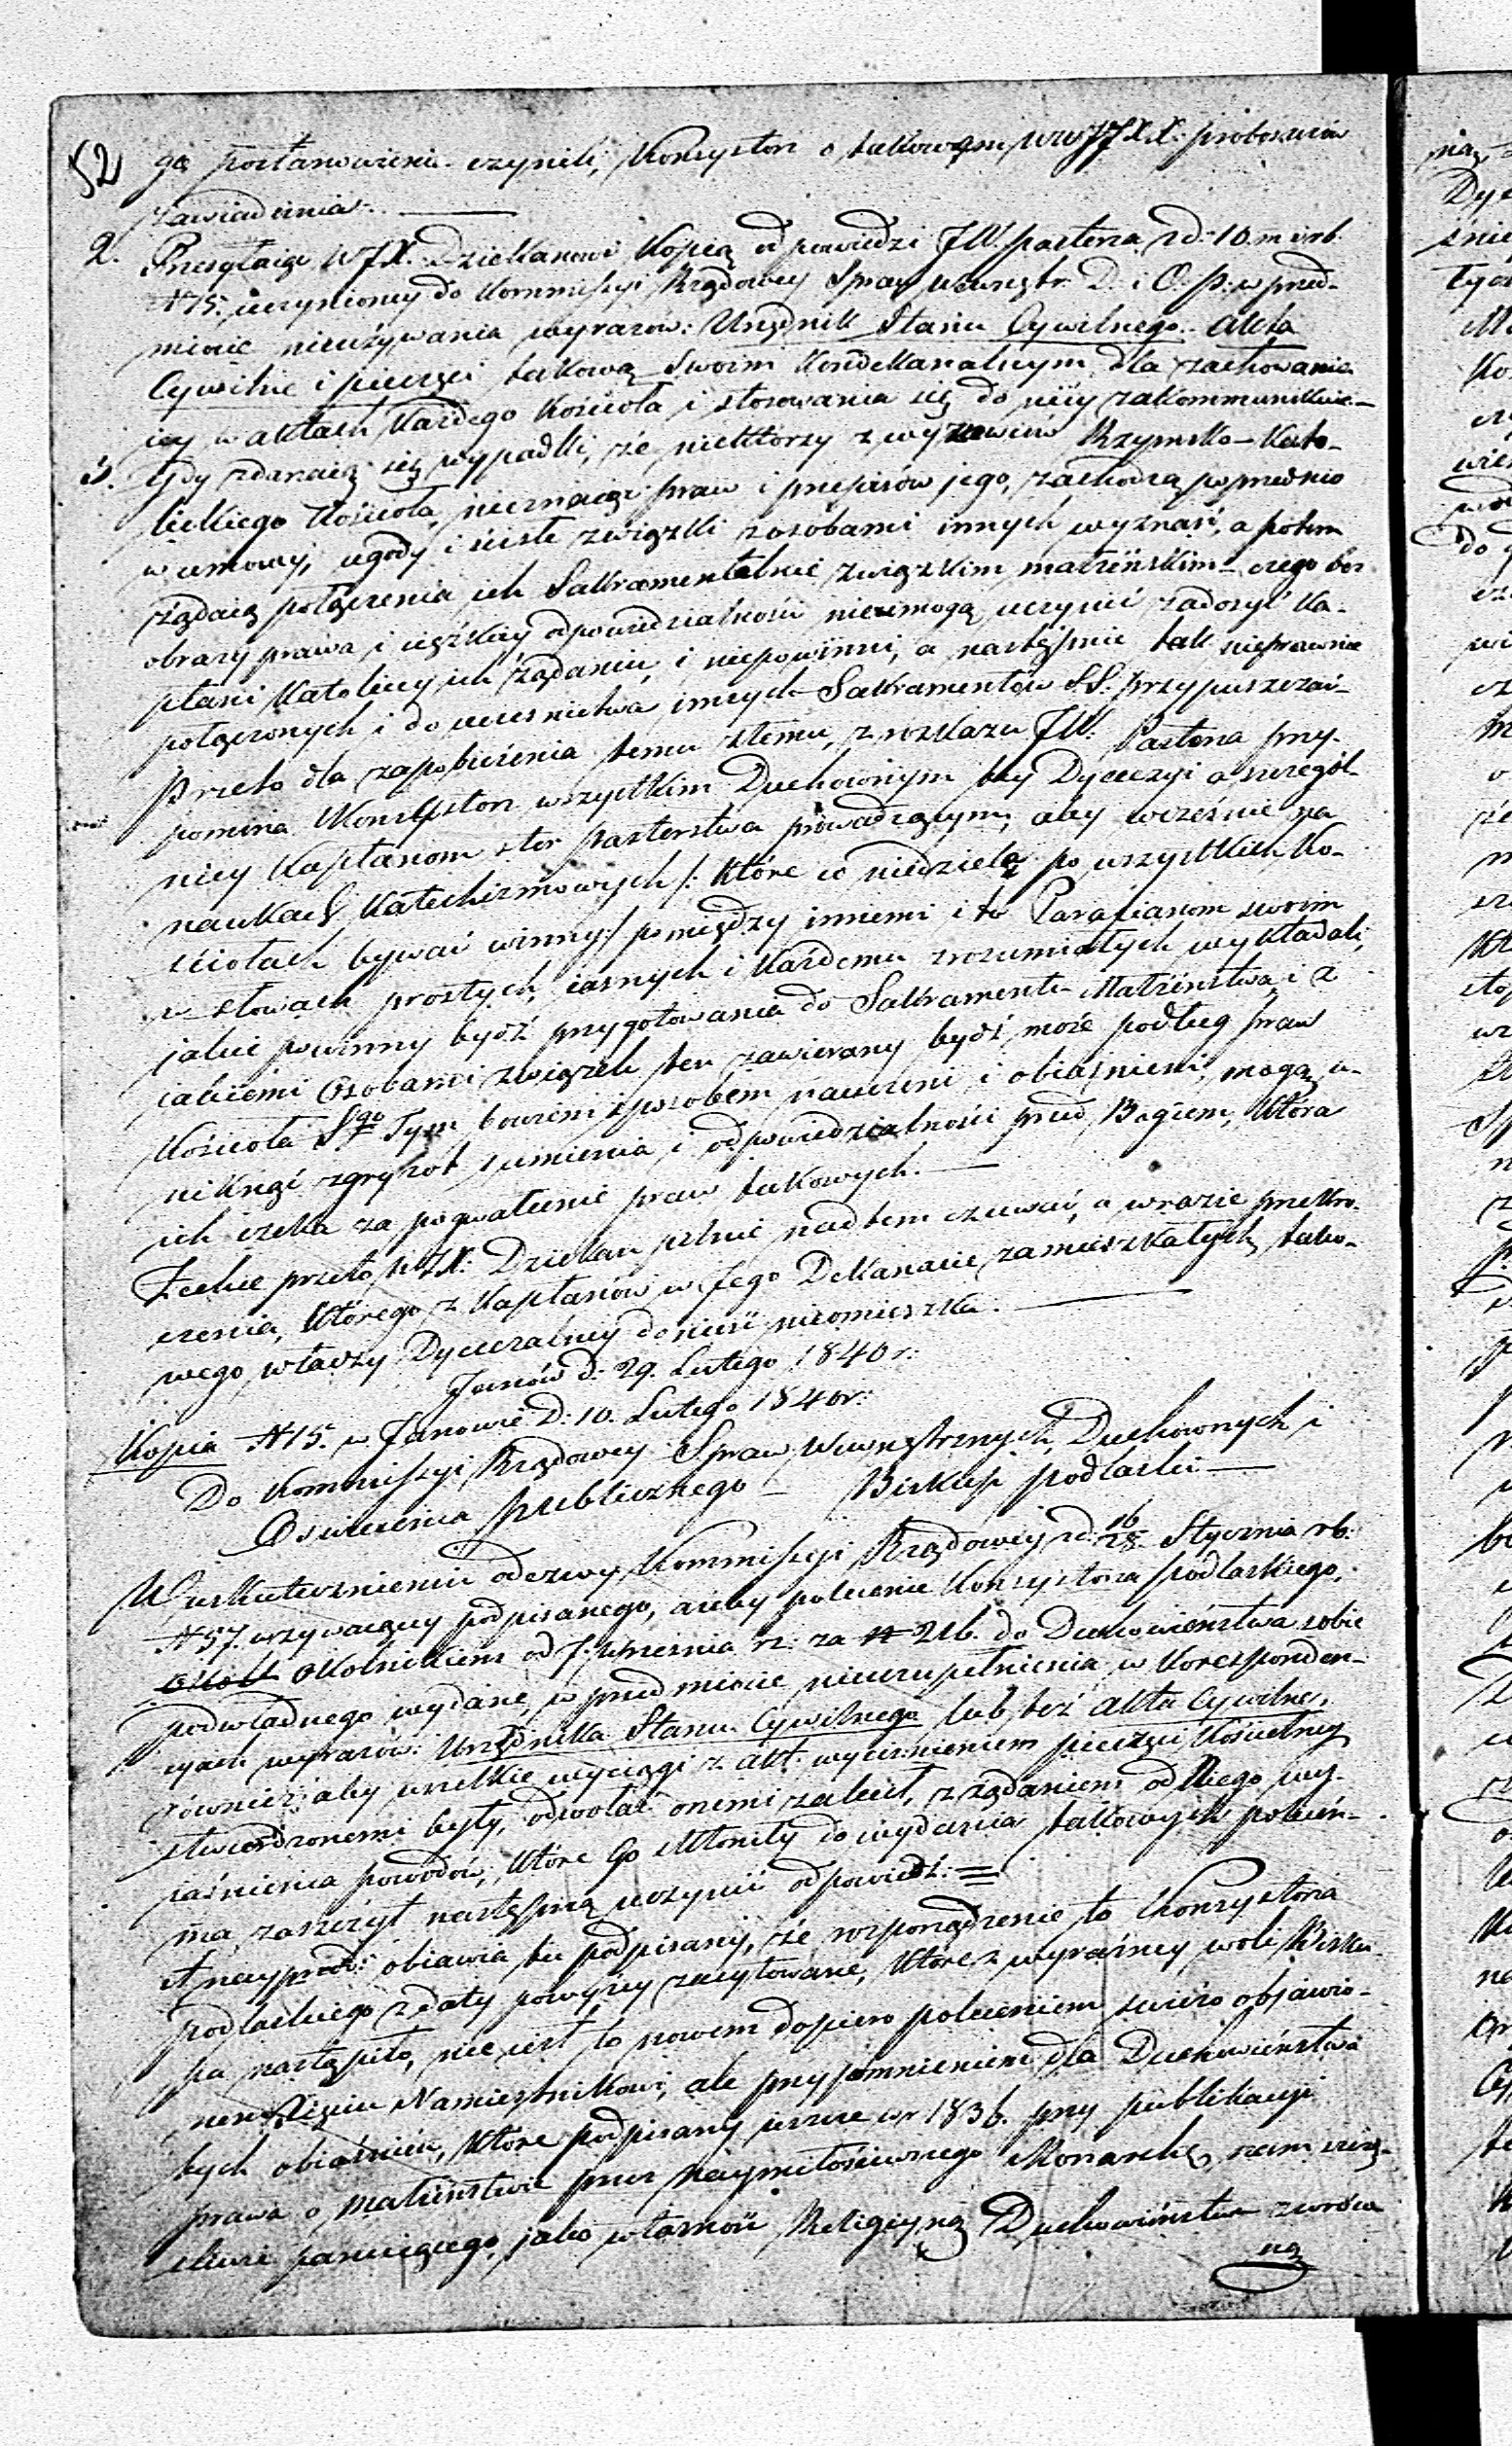 52 go postanowienie czynili, Konsystorz o takowym WWJJXX. proboszczów
zawiadamia. —
2. Przesyłaiąc WJX. Dziekanowi Kopią odpowiedzi JW. Pasterza z d: 10. m i rb.
N 15. uczynioney do Kommissyi Rządowey Spraw Wewnętr. D. i O. P. w przed-
miocie nieużywania wyrazów: Urzędnik Stanu Cywilnego. Akta
Cywilne i pieczęci takową swoim Kondekanalnym dla zachowania
iey w aktach każdego Kościoła i stosowania się do niey zakommunikuie. —
3. Gdy zdarzaią się wypadki, że niektórzy z wyznawców Rzymsko-Kato-
lickiego Kościoła, nieznaiąc praw i przepisów jego, zachodzą poprzednio
w umowy, ugody i ścisłe związki z osobami innych wyznań, a potem
żądaią połączenia ich Sakramentalnie związkiem małżeńskim — czego bez
obrazy prawa i ciężkiey odpowiedzialności niemogą uczynić zadosyć Ka-
płani Katoliccy ich żądaniu, i niepowinni, a następnie tak nieprawnie
połączonych i do uczesnictwa innych Sakramentów SS. przypuszczać —
Przeto dla zapobieżenia temu złemu, z rozkazu JW. Pasterza przy-
pomina Konsystorz wszystkim Duchownym tey Dyecezyi a szczegól-
niey Kapłanom ster pasterstwa prowadzącym, aby wcześnie na
naukach Katechizmowych /: które co niedzielę po wszystkich Ko-
ściołach bywać winny :/ pomiędzy innemi i to Parafianom swoim
w słowach prostych, iasnych i każdemu zrozumiałych wykładali,
jakie powinny bydź przygotowania do Sakramentu Małżeństwa, i z
jakiemi Osobami związek ten zawierany bydź może podług praw
Kościoła Sgo Tym bowiem sposobem nauczeni i obiaśnieni, mogą u-
niknąć zgryzot sumienia i odpowiedzialności przed Bogiem, która
ich czeka za pogwałcenie praw takowych. —
Zechce przeto WJX. Dziekan pilnie nad tem czuwać, a w razie przekro-
czenia, którego z Kapłanów w Jego Dekanacie zamieszkałych, tako-
wego władzy Dyecezalney donieść nieomieszka. —
Janów d: 29. Lutego 1840 r:
Kopia N 15. w Janowie D: 10. Lutego 1840 r:
Do Kommissyi Rządowey Spraw Wewnętrznych, Duchownych i
Oświecenia publicznego — Biskup podlaski —
W uskutecznieniu odezwy Kommissyi Rządowey z d: 16/28 Stycznia rb.
N 57. wzywaiącey podpisanego, ażeby polecenie Konsystorza podlaskiego,
okolnikiem od 7. Września rz: za N 216. do Duchowieństwa sobie
podwładnego wydane, w przedmiocie nieuzupełnienia w koresponden-
cyach wyrazów: Urzędnika Stanu Cywilnego lub też akta Cywilne,
również aby wszelkie wyciągi z akt: wyciśnieniem pieczęci Kościelney
stwierdzonemi były, odwołać onemi zalecił, z żądaniem od Niego wy-
jaśnienia powodów, które Go skłoniły do wydania takowych poleceń —
ma zaszczyt następną uczynić odpowiedź: =
A nayprzód: obiawia tu podpisany, że rozporządzenie to Konsystorza
podlaskiego z daty powyżey zacytowane, które z wyraźney woli Bisku-
pa nastąpiło, nie iest to nowem dopiero poleceniem świeżo objawio-
nem Xięciu Namiestnikowi, ale przypomnieniem dla Duchowieństwa
tych obiaśnień, które podpisany ieszcze w r 1836. przy publikacyi
prawa o małżeństwie przez Naymiłościwszego Monarchę, nam szczę-
śliwie panuiącego, jako własność Religiyną Duchowieństwu zwróco
ną